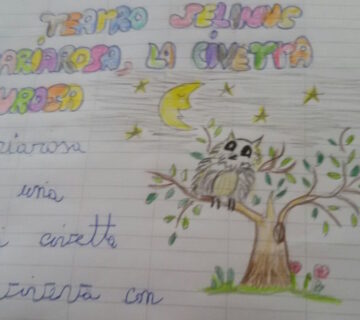 TEATRO SELINUS
ARIAROSA, LA CIVETTA
UROSA
riarosa
una
i civetta
viveva con